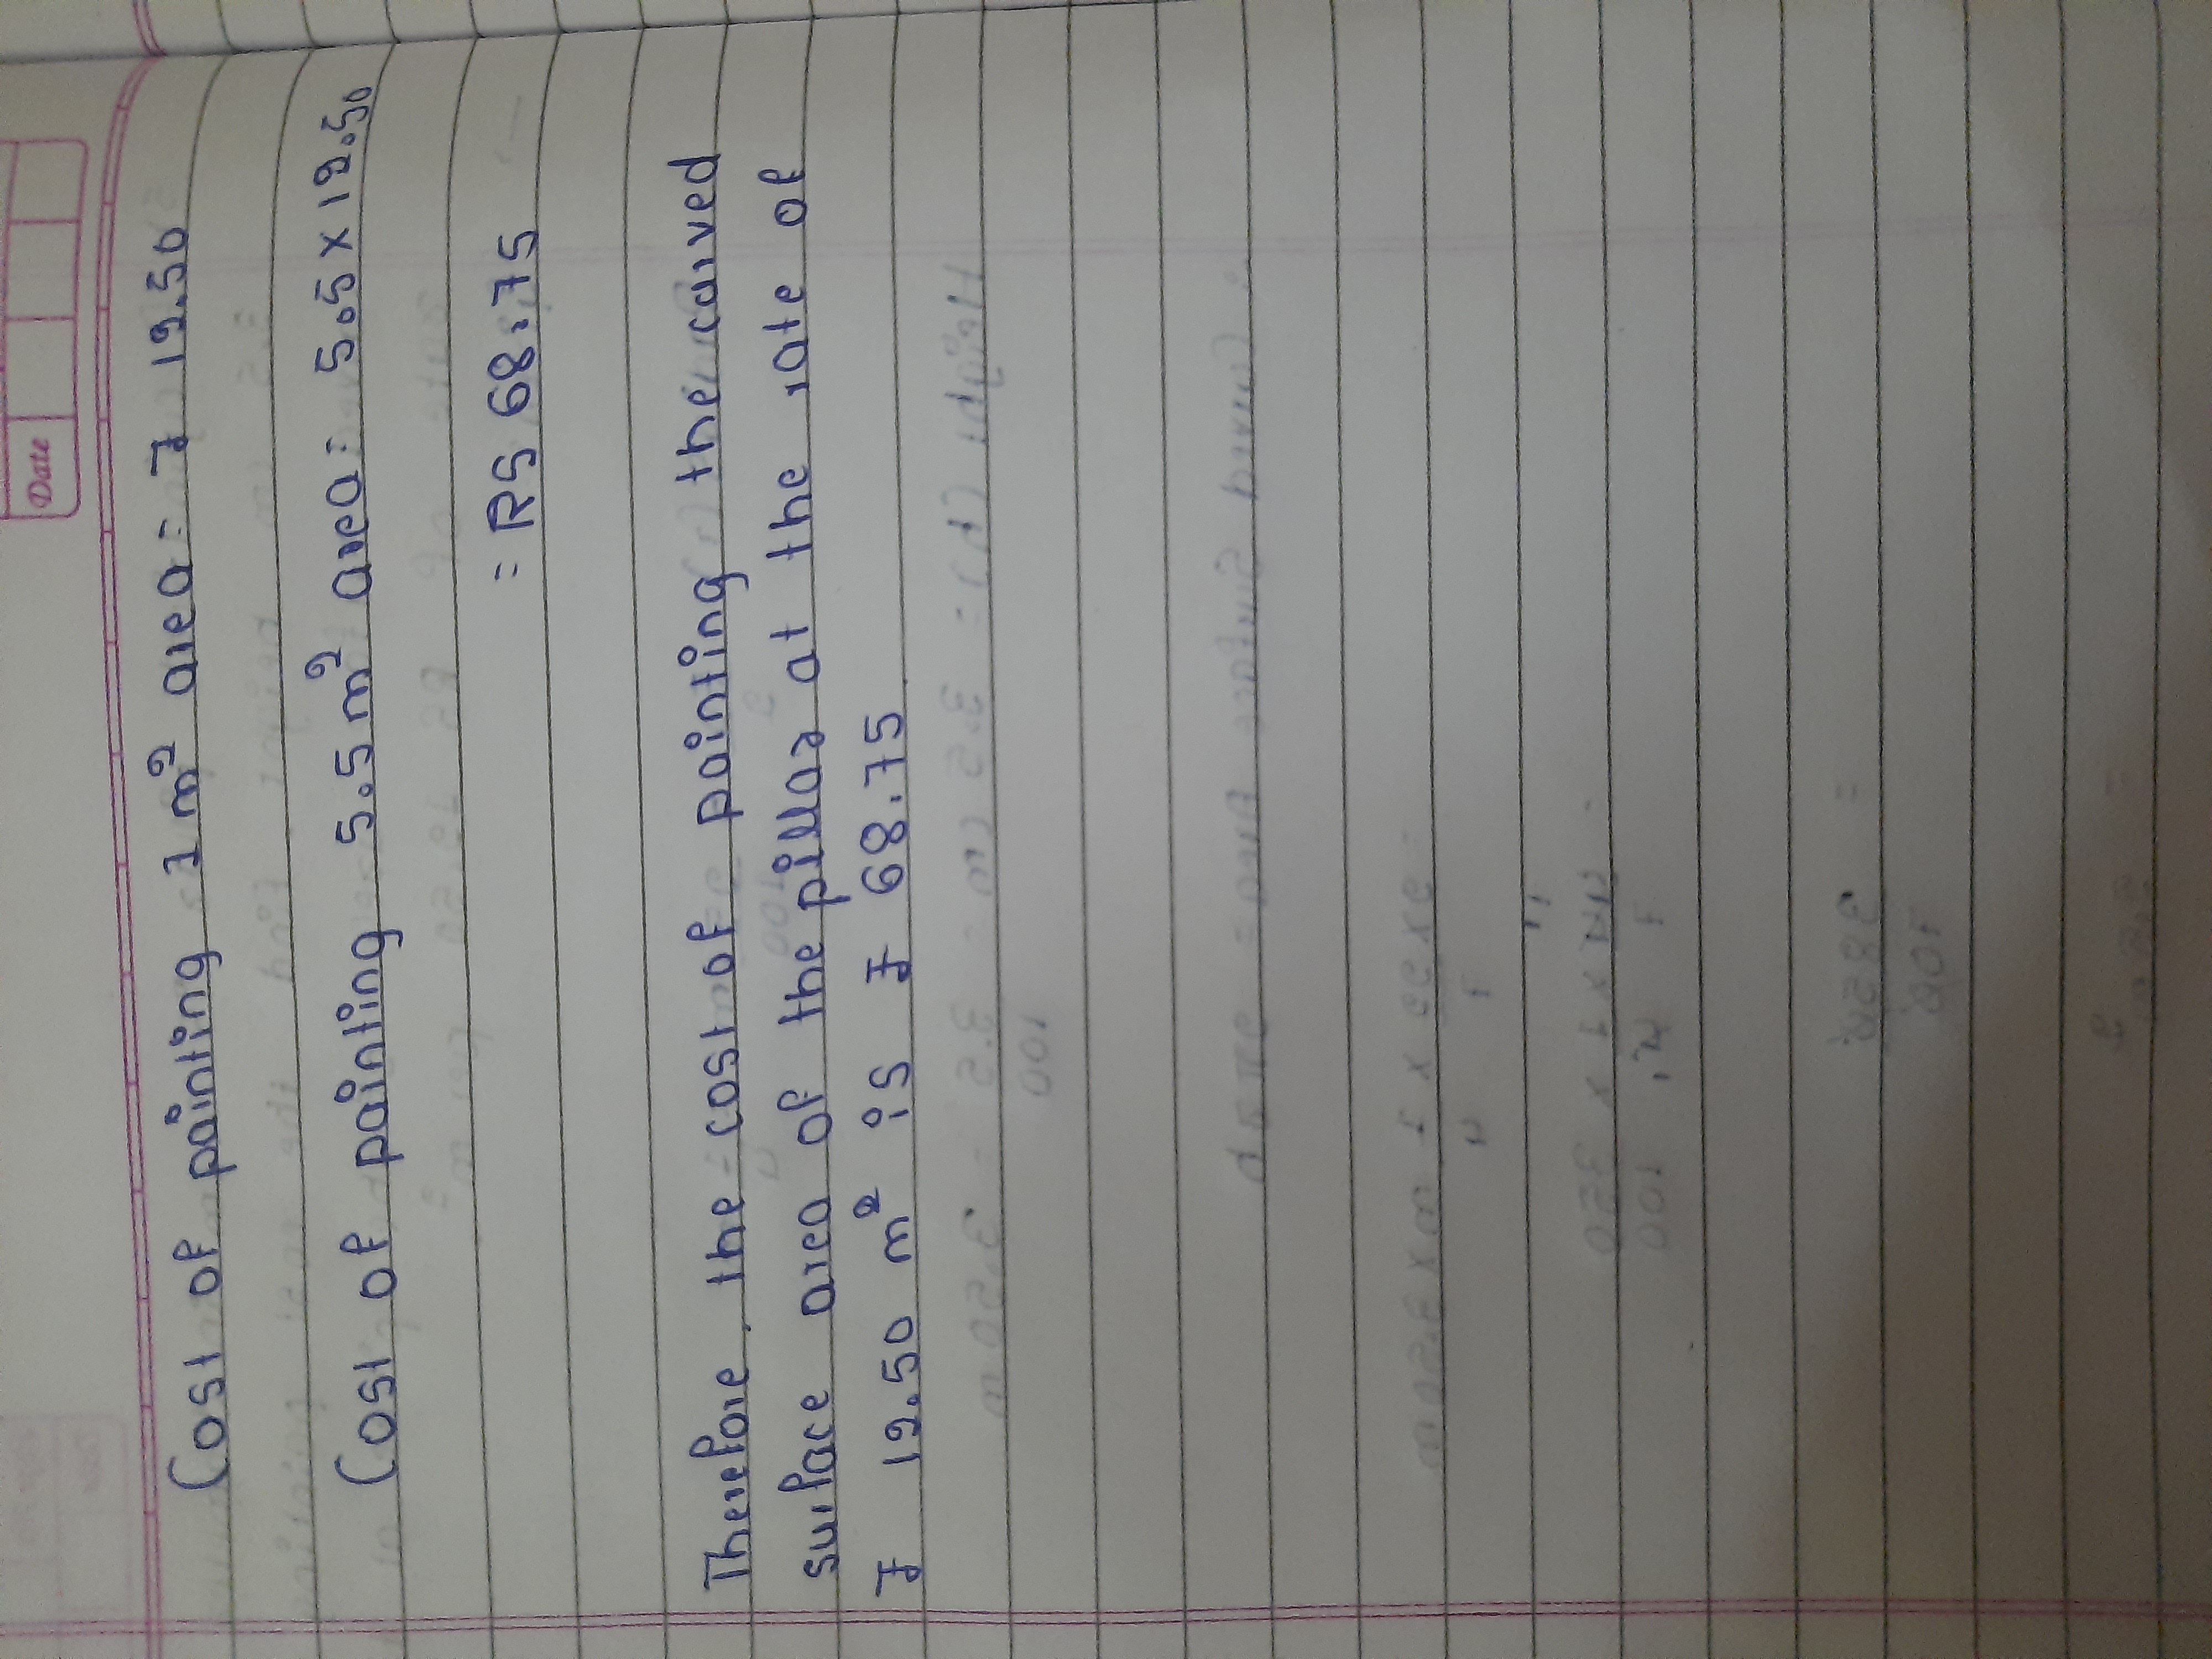 Date
Cost of painting 1 m² area = ₹ 12.50
Cost of painting 5.5 m² area = 5.5 × 12.50
= RS 68.75
Therefore, the cost of painting the curved
surface area of the pillar at the rate of
₹ 12.50 m² is ₹ 68.75